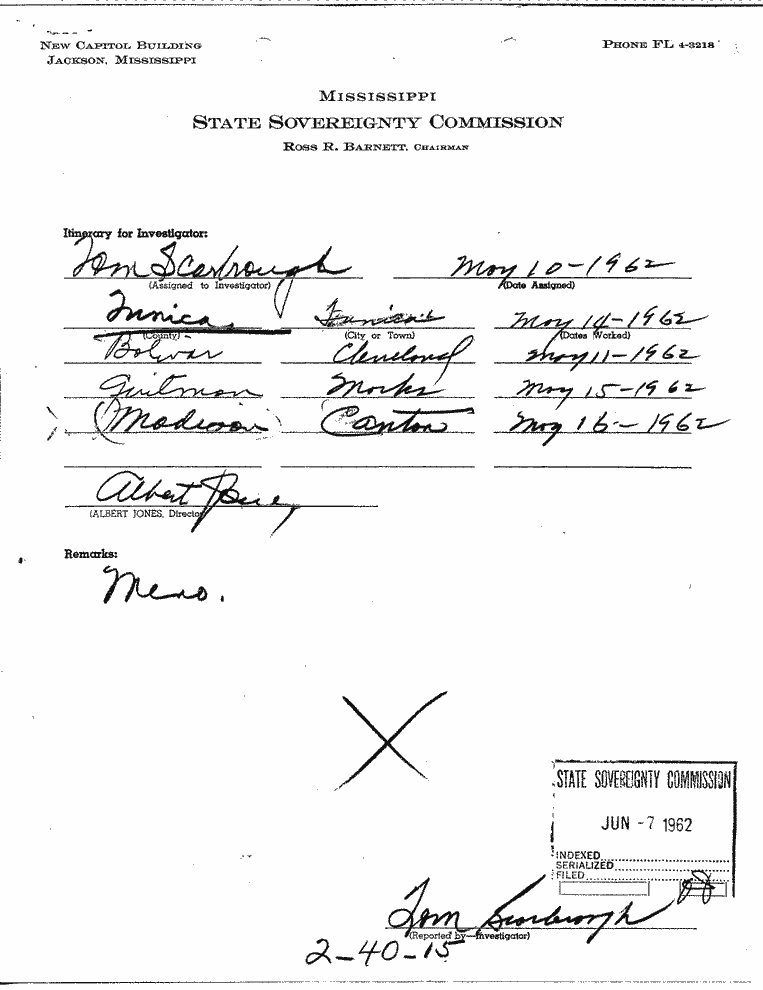 NEW CAPITOL BUILDING
JACKSON, MISSISSIPPI
PHONE FL 4-3218
MISSISSIPPI
STATE SOVEREIGNTY COMMISSION
ROSS R. BARNETT, CHAIRMAN
Itinerary for Investigator:
Tom Scarbrough May 10-1962
(Assigned to Investigator) (Date Assigned)
Tunica Tunica May 14-1962
(County) (City or Town) (Dates Worked)
Bolivar Cleveland May 11-1962
Quitman Marks May 15-1962
(Madison) Canton May 16-1962
Albert Jones
(ALBERT JONES, Director)
Remarks:
Memo.
STATE SOVEREIGNTY COMMISSION
JUN -7 1962
INDEXED
SERIALIZED
FILED
Tom Scarbrough
(Reported by—Investigator)
2-40-15